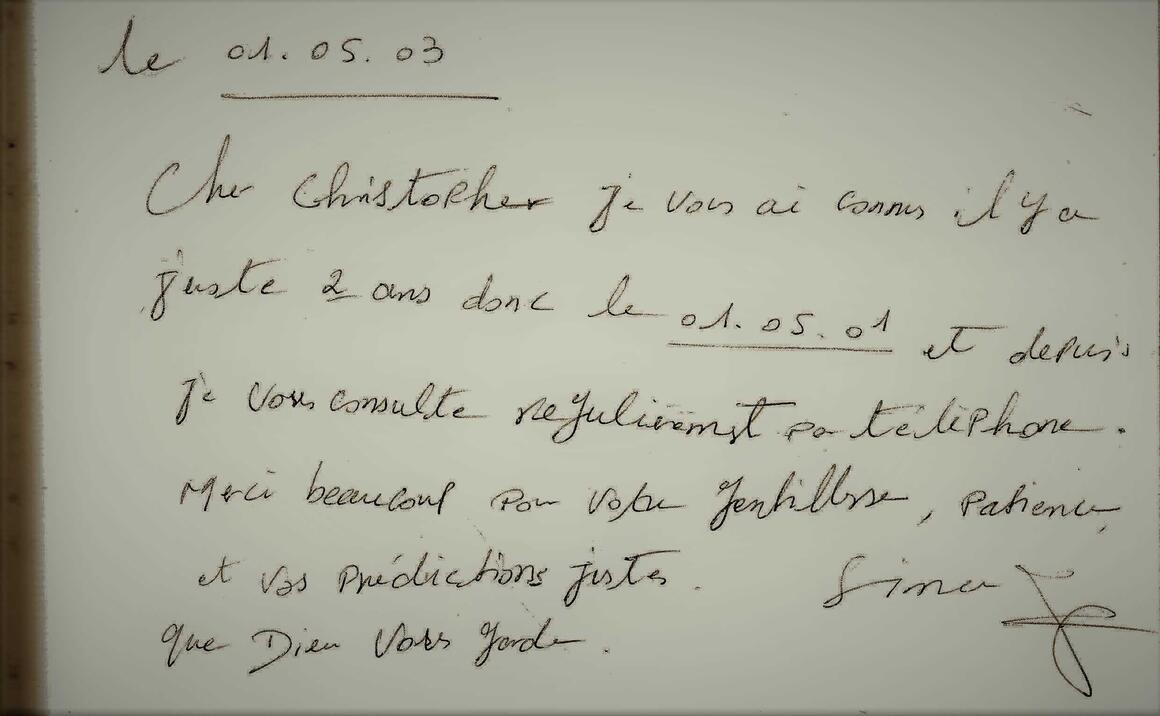 le 01.05.03
Cher Christopher je vous ai connus il y a
juste 2 ans donc le 01.05.01 et depuis
je vous consulte régulièrement par téléphone.
Merci beaucoup pour votre gentillesse, patience,
et vos prédictions justes. Simon
que Dieu vous garde.